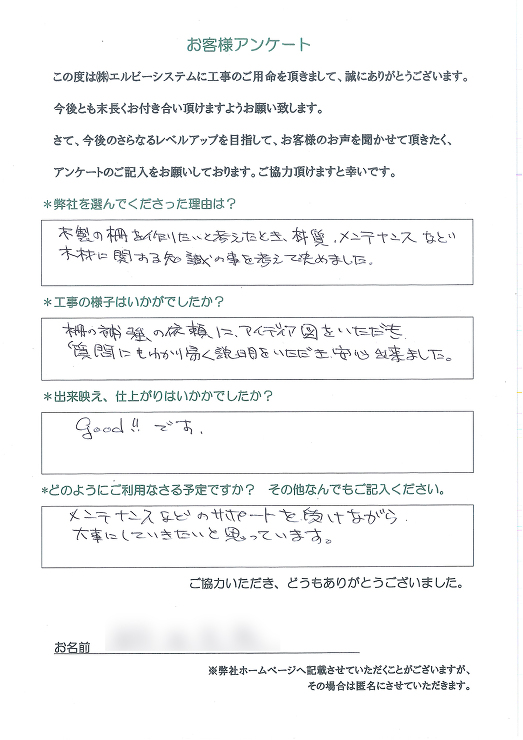 お客様アンケート
この度は㈱エルビーシステムに工事のご用命を頂きまして、誠にありがとうございます。
今後とも末長くお付き合い頂けますようお願い致します。
さて、今後のさらなるレベルアップを目指して、お客様のお声を聞かせて頂きたく、
アンケートのご記入をお願いしております。ご協力頂けますと幸いです。
＊弊社を選んでくださった理由は？
木製の柵を作りたいと考えたとき、材質、メンテナンスなどい
木材に関する知識の事を考えて決めました。
＊工事の様子はいかがでしたか？
柵の補強の依頼に、アイディア図をいただき
質問にもわかり易く説明をいただき安心出来ました。
＊出来映え、仕上がりはいかかでしたか？
good!! です。
*どのようにご利用なさる予定ですか？　その他なんでもご記入ください。
メンテナンスなどのサポートを受けながら
大事にしていきたいと思っています。
ご協力いただき、どうもありがとうございました。
お名前
※弊社ホームページへ記載させていただくことがございますが、
その場合は匿名にさせていただきます。